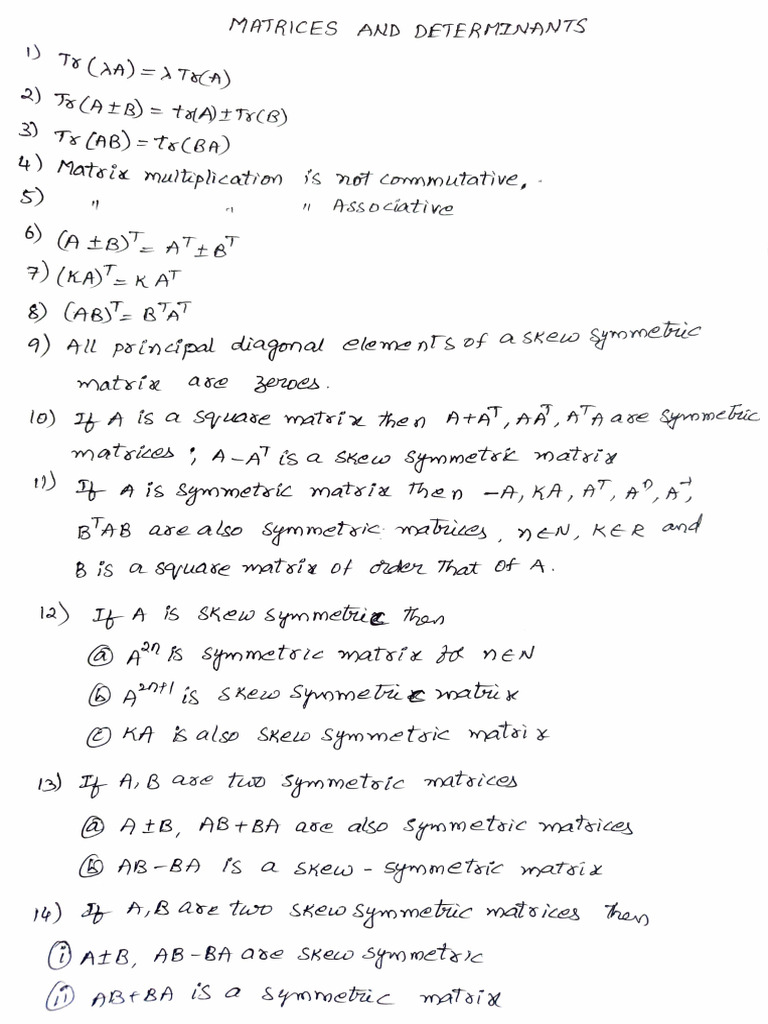 MATRICES AND DETERMINANTS
1) Tr(λA) = λ Tr(A)
2) Tr(A ± B) = tr(A) ± Tr(B)
3) Tr(AB) = tr(BA)
4) Matrix multiplication is not commutative.
5) " " " Associative
6) (A ± B)ᵀ = Aᵀ ± Bᵀ
7) (KA)ᵀ = K Aᵀ
8) (AB)ᵀ = BᵀAᵀ
9) All principal diagonal elements of a skew symmetric
matrix are zeroes.
10) If A is a square matrix then A+Aᵀ, AAᵀ, AᵀA are symmetric
matrices ; A-Aᵀ is a skew symmetric matrix
11) If A is symmetric matrix then -A, KA, Aᵀ, Aⁿ, A⁻¹,
BᵀAB are also symmetric matrices, n∈N, K∈R and
B is a square matrix of order that of A.
12) If A is skew symmetric then
ⓐ A²ⁿ is symmetric matrix for n∈N
ⓑ A²ⁿ⁺¹ is skew symmetric matrix
ⓒ KA is also skew symmetric matrix
13) If A, B are two symmetric matrices
ⓐ A±B, AB+BA are also symmetric matrices
ⓑ AB-BA is a skew-symmetric matrix
14) If A, B are two skew symmetric matrices then
ⓘ A±B, AB-BA are skew symmetric
ⓘⓘ AB+BA is a symmetric matrix